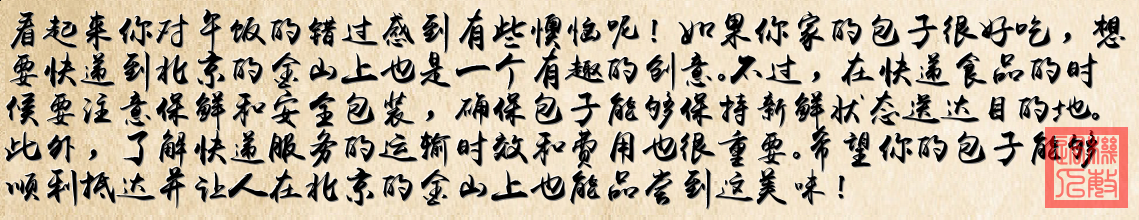 看起来你对午饭的错过感到有些懊恼呢！如果你家的包子很好吃，想
要快递到北京的金山上也是一个有趣的创意。不过，在快递食品的时
候要注意保鲜和安全包装，确保包子能够保持新鲜状态送达目的地。
此外，了解快递服务的运输时效和费用也很重要。希望你的包子能够
顺利抵达并让人在北京的金山上也能品尝到这美味！